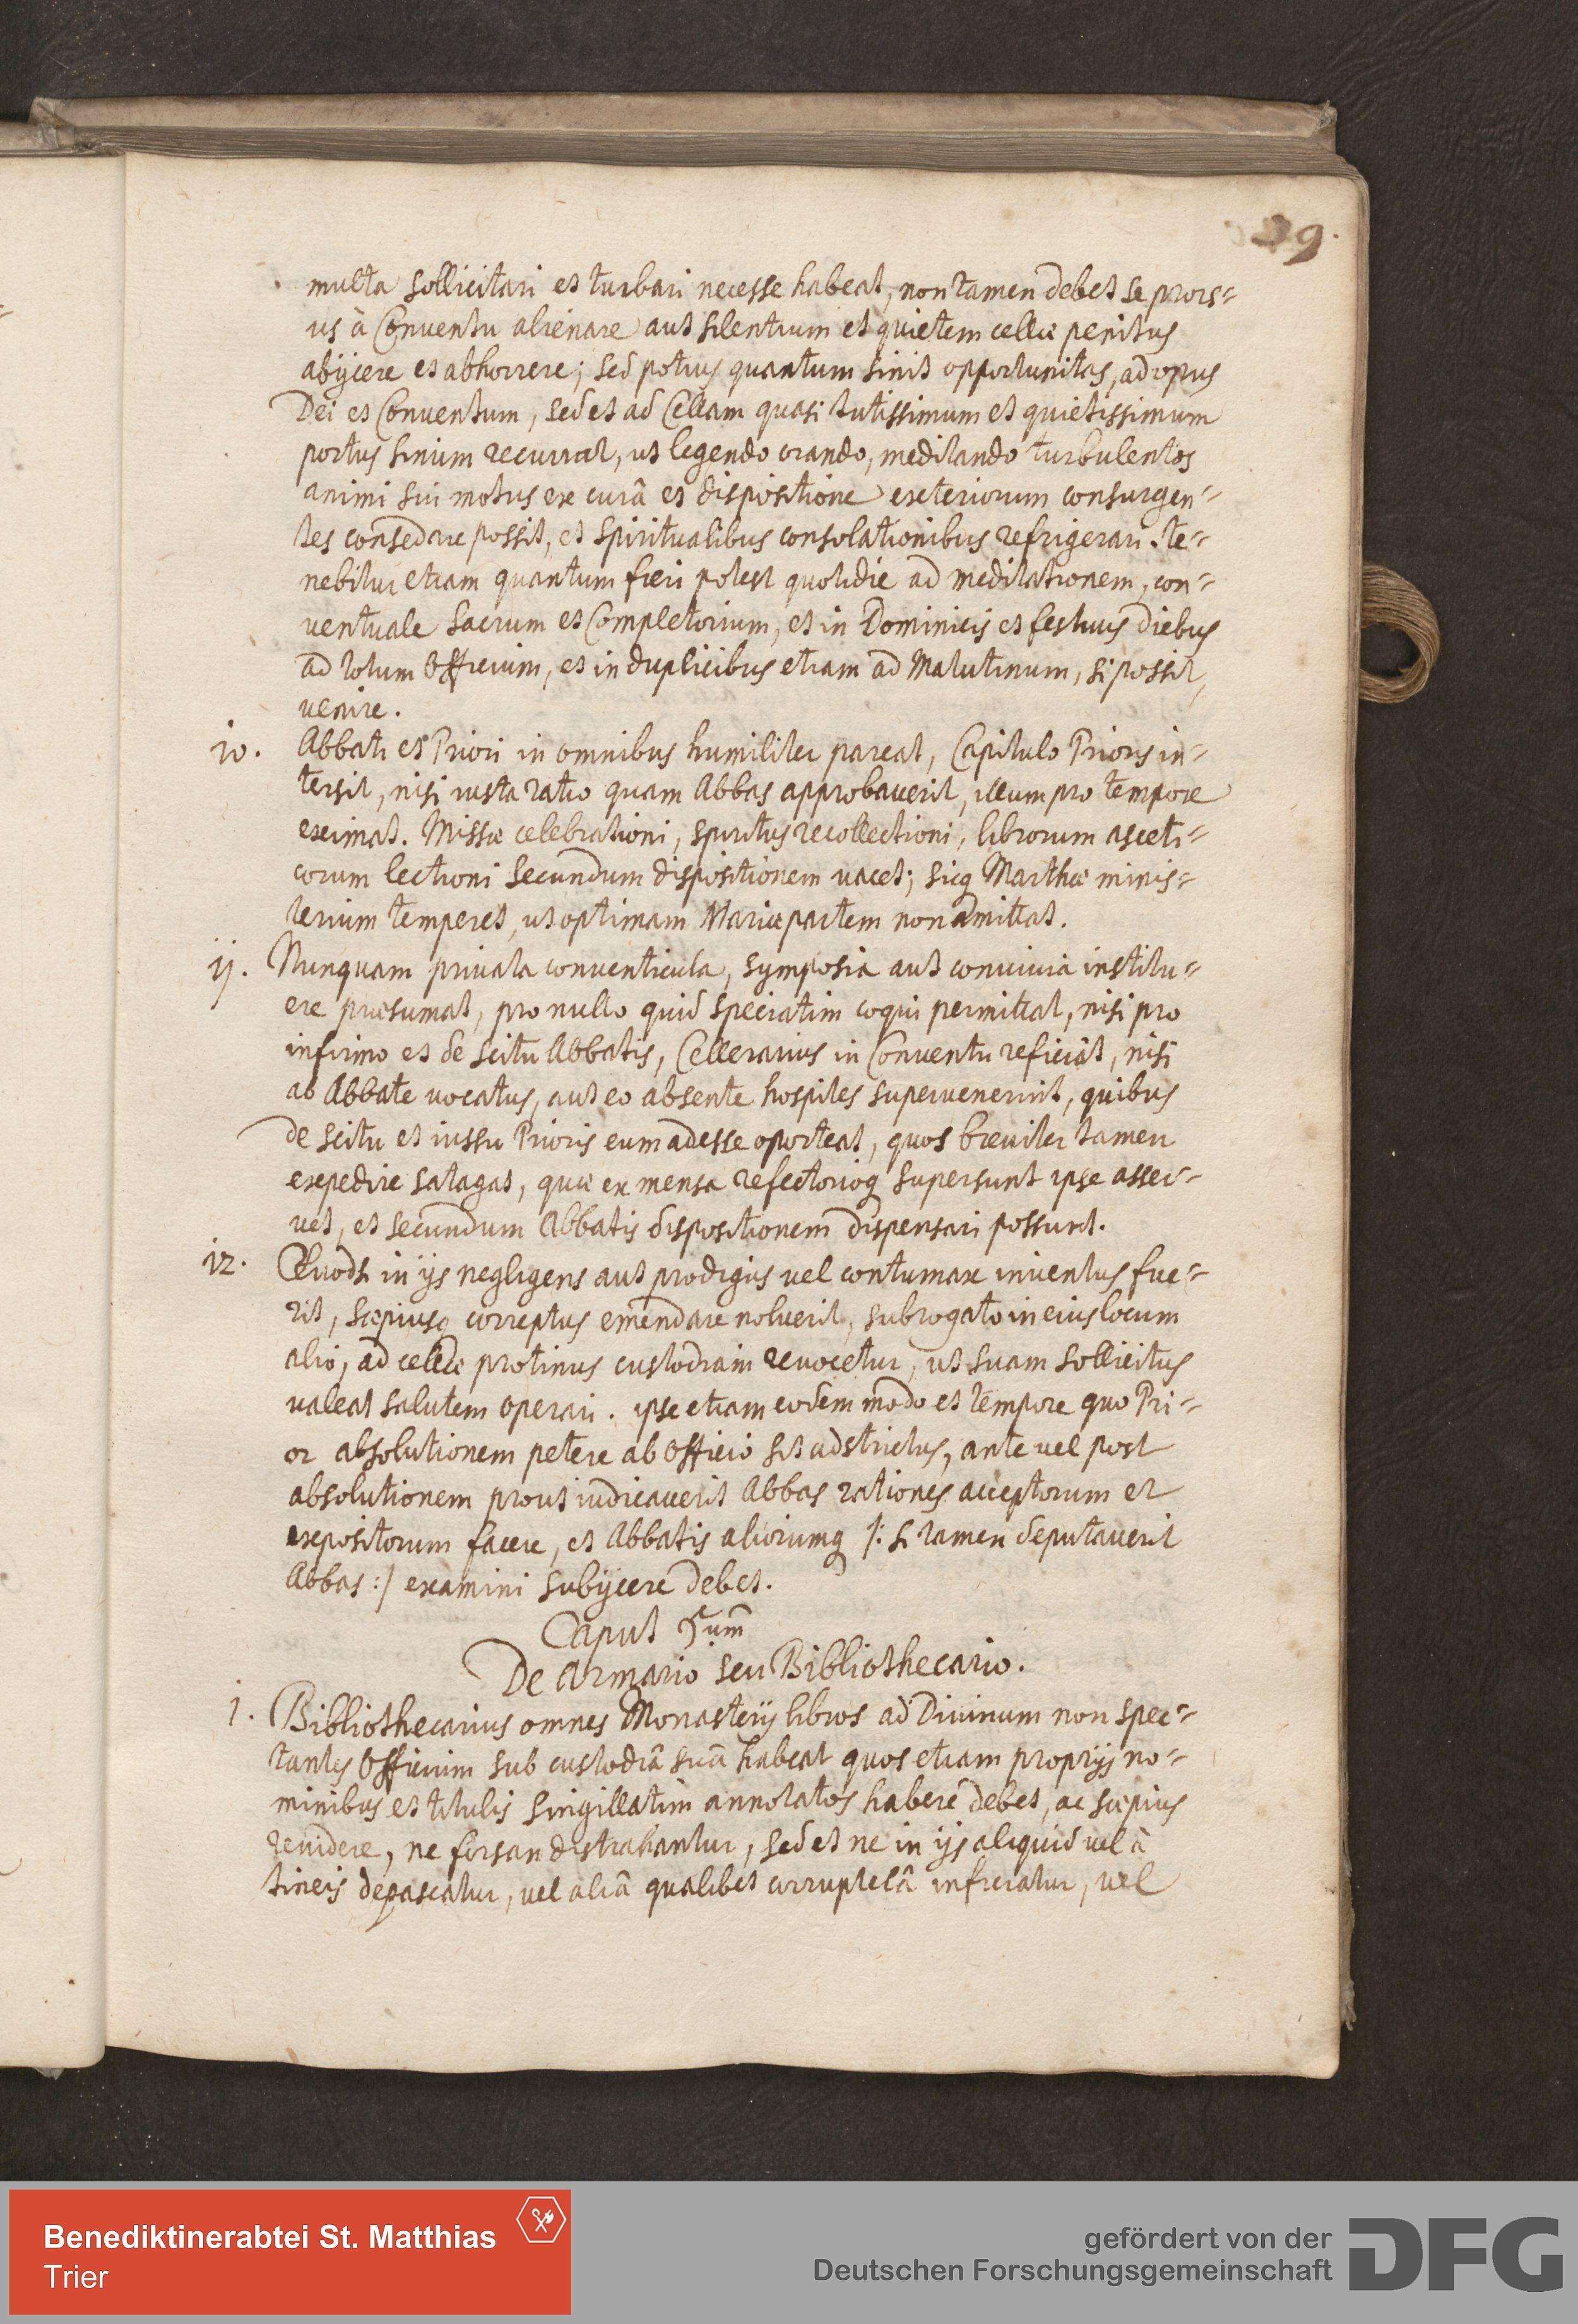 29.
multa sollicitari et turbari necesse habeat, non tamen debet se prors=
us à Conventu alienare aut silentium et quietem cellæ penitus
abijcere et abhorrere; sed potius quantum sinit opportunitas, ad opus
Dei et Conventum, sed et ad Cellam quasi tutissimum et quietissimum
portus sinum recurrat, ut legendo orando, meditando turbulentos
animi sui motus ex curâ et dispositione exteriorum consurgen=
tes consedare possit, et spiritualibus consolationibus refrigerari. te=
nebitur etiam quantum fieri potest quotidie ad meditationem, con=
ventuale Sacrum et Completorium, et in Dominicis et festivis diebus
ad totum Officium, et in duplicibus etiam ad Matutinum, si possit,
venire.
10. Abbati et Priori in omnibus humiliter pareat, Capitulo Prioris in=
tersit, nisi iusta ratio quam Abbas approbaverit, illum pro tempore
eximat. Missæ celebrationi, spiritus recollectioni, librorum asceti=
corum lectioni secundum dispositionem vacet; sicq Marthæ minis=
terium temperet, ut optimam Mariæ partem non amittat.
11. Nunquam privata conventicula, symposia aut convivia institu=
ere præsumat, pro nullo quid speciatim coqui permittat, nisi pro
infirmo et de scitu Abbatis, Cellerarius in Conventu reficiat, nisi
ab Abbate vocatus, aut eo absente hospites supervenerint, quibus
de scitu et iussu Prioris eum adesse oporteat, quos breviter tamen
expedire satagat, quæ ex mensa refectorioq supersunt ipse asser=
vet, et secundum Abbatis dispositionem dispensari possunt.
12. Quodsi in ijs negligens aut prodigus vel contumax inventus fue=
rit, sæpiusq correptus emendare noluerit, subrogato in eius locum
alio, ad cellæ protinus custodiam revocetur, ut suam sollicitus
valeat salutem operari. ipse etiam eodem modo et tempore quo Pri=
or absolutionem petere ab Officio sit adstrictus, ante vel post
absolutionem prout iudicaverit Abbas rationes acceptorum et
expositorum facere, et Abbatis aliorumq /: si tamen deputaverit
Abbas :/ examini subijcere debet.
Caput 5um
De Armario seu Bibliothecario.
1. Bibliothecarius omnes Monasterij libros ad Divinum non spec=
tantes Officium sub custodiâ suâ habeat quos etiam proprijs no=
minibus et titulis singillatim annotatos habere debet, ac sæpius
revidere, ne forsan distrahantur, sed et ne in ijs aliquid vel à
tineis depascatur, vel aliâ qualibet corruptelâ inficiatur, vel
Benediktinerabtei St. Matthias
Trier
gefördert von der
Deutschen Forschungsgemeinschaft
DFG